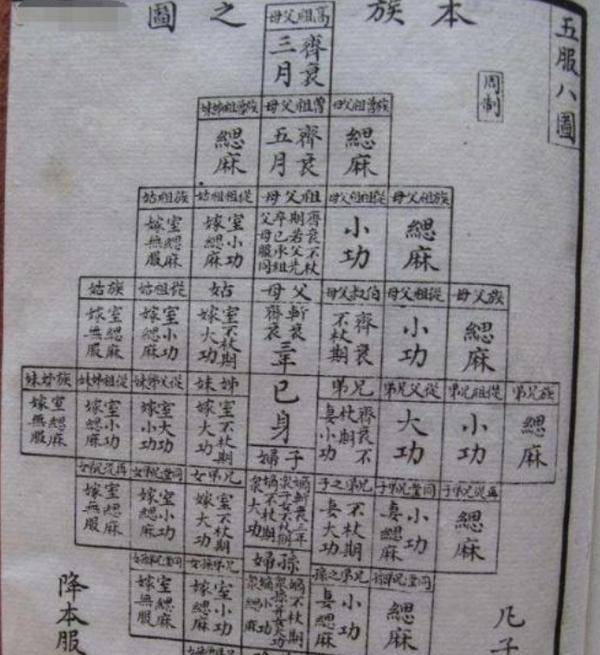 五服八圖
周制
本族之圖
高祖父母
齊衰三月
族曾祖父母
緦麻
曾祖父母
齊衰五月
族曾祖姑姊妹
緦麻
族祖父母
緦麻
從祖祖父母
小功
祖父母
齊衰不杖期若父先卒已承祖父母服同
從祖祖姑
室小功
嫁緦麻
族祖姑
室緦麻
嫁無服
族父母
緦麻
從祖父母
小功
伯叔父母
齊衰不杖期
父母
斬衰三年
齊衰
姑
室不杖期
嫁大功
從祖姑
室小功
嫁緦麻
族姑
室緦麻
嫁無服
族兄弟
緦麻
從祖兄弟
小功
從父兄弟
大功
兄弟
齊衰不杖期
妻小功
己身
姊妹
室不杖期
嫁大功
從父姊妹
室大功
嫁小功
從祖姊妹
室小功
嫁緦麻
族姊妹
室緦麻
嫁無服
再從兄弟子
緦麻
同堂兄弟子
小功
妻緦麻
兄弟之子
不杖期
妻大功
子婦
兄弟女
室不杖期
嫁大功
同堂兄弟女
室小功
嫁緦麻
再從兄弟女
室緦麻
嫁無服
同堂兄弟孫
緦麻
兄弟之孫
小功
妻緦麻
孫婦
兄弟孫女
室小功
嫁緦麻
室緦麻
嫁無服
凡子
降本服